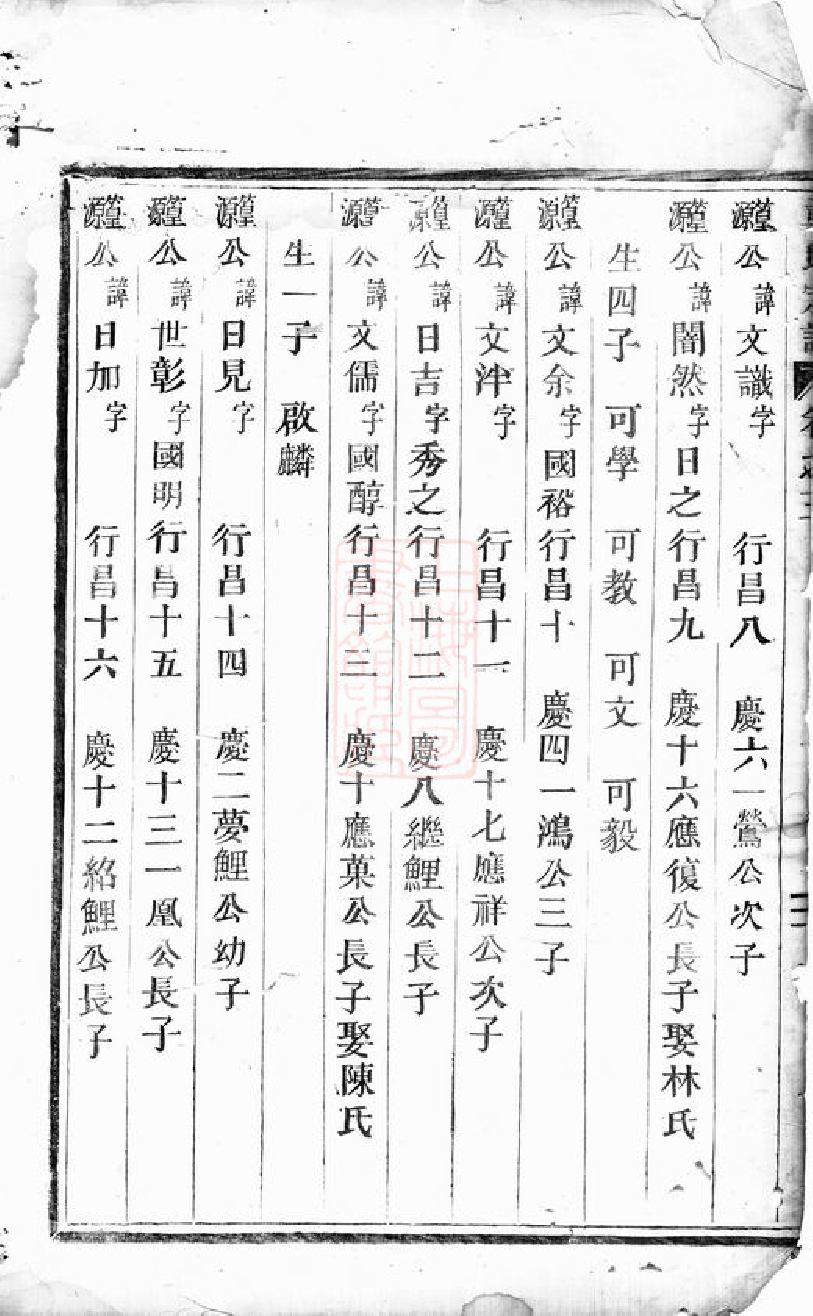 篁源公諱文識字 行昌八 慶六一鶯公次子
篁源公諱闇然字日之行昌九 慶十六應復公長子娶林氏
生四子 可學 可教 可文 可毅
篁源公諱文余字國裕行昌十 慶四一鴻公三子
篁源公諱文泮字 行昌十一 慶十七應祥公次子
篁源公諱日吉字秀之行昌十二 慶八繼鯉公長子
篁源公諱文儒字國醇行昌十三 慶十應菓公長子娶陳氏
生一子 啟麟
篁源公諱日見字 行昌十四 慶二夢鯉公幼子
篁源公諱世彰字國明行昌十五 慶十三一凰公長子
篁源公諱日加字 行昌十六 慶十二紹鯉公長子